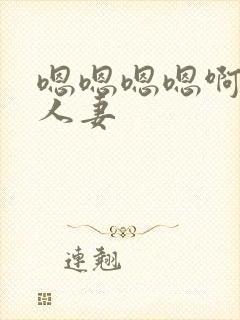 嗯嗯嗯嗯啊
人妻
連翹